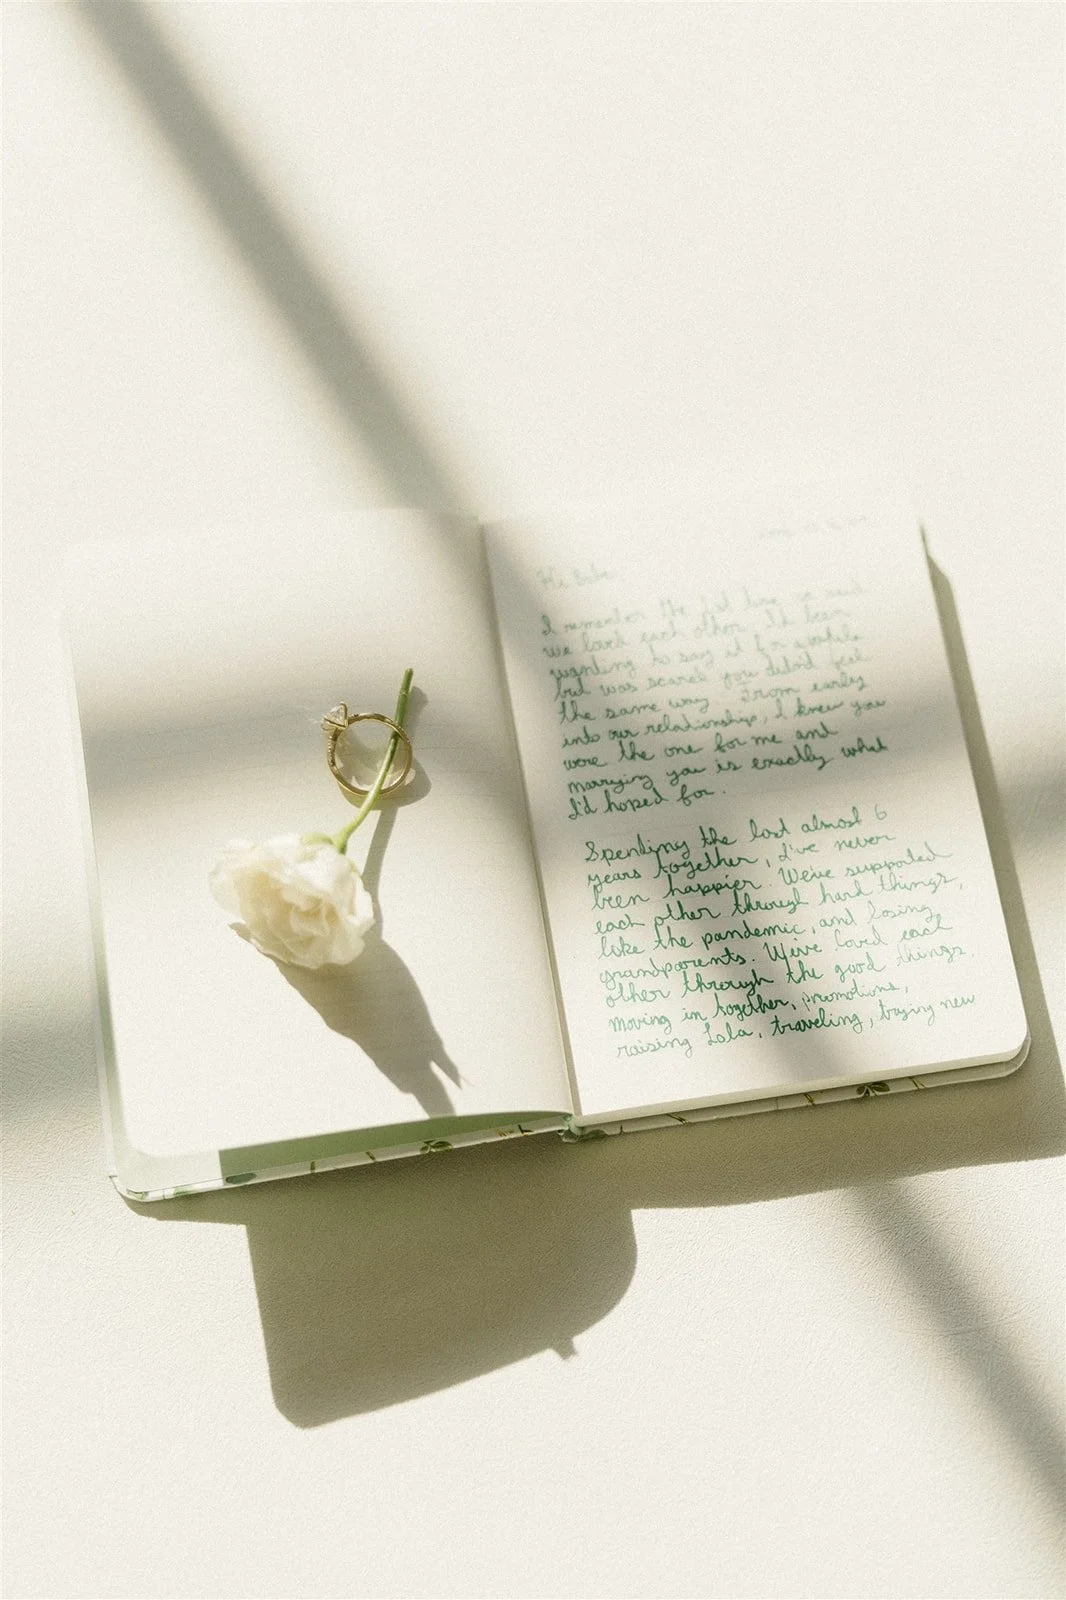 Hi Babe
I remember the first time we said
we love each other. I'd been
wanting to say it for awhile
but was scared you didn't feel
the same way. From early
into our relationship, I knew you
were the one for me and
marrying you is exactly what
I'd hoped for.
Spending the last almost 6
years together, I've never
been happier. We've supported
each other through hard things,
like the pandemic, and losing
grandparents. We've loved each
other through the good things,
moving in together, promotions,
raising Lola, traveling, trying new